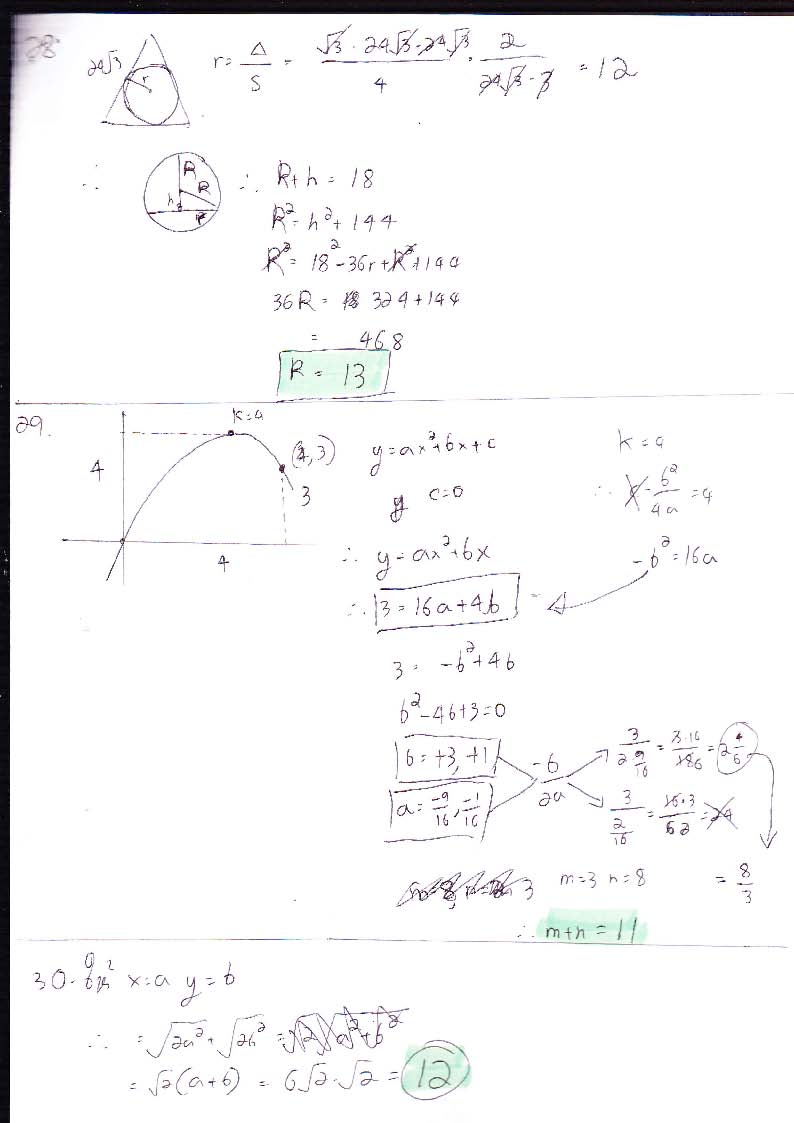 28
24√3 r r = Δ/S = √3 · 24√3 · 24√3 / 4 · 2 / 24√3 · 3 = 12
∴ R R h r ∴ R + h = 18
R² = h² + 144
R² = 18² - 36r + R² + 144
36R = 324 + 144
= 468
R = 13
29.
k = 4
4
(4, 3)
3
4
y = ax² + bx + c
y c = 0
∴ y = ax² + bx
∴ 3 = 16a + 4b
k = 4
∴ - b²/4a = 4
-b² = 16a
3 = -b² + 4b
b² - 4b + 3 = 0
b = +3, +1
a = -9/16, -1/16
-b/2a
3 / 2 9/16 = 3·16/186 = 2 4/6
3 / 2/16 = 16·3/62 = 24
m = 3 n = 8 = 8/3
∴ m + n = 11
30. x = a y = b
∴ = √2a² + √2b² = √2 √a² + b²
= √2 (a + b) = 6√2 · √2 = 12